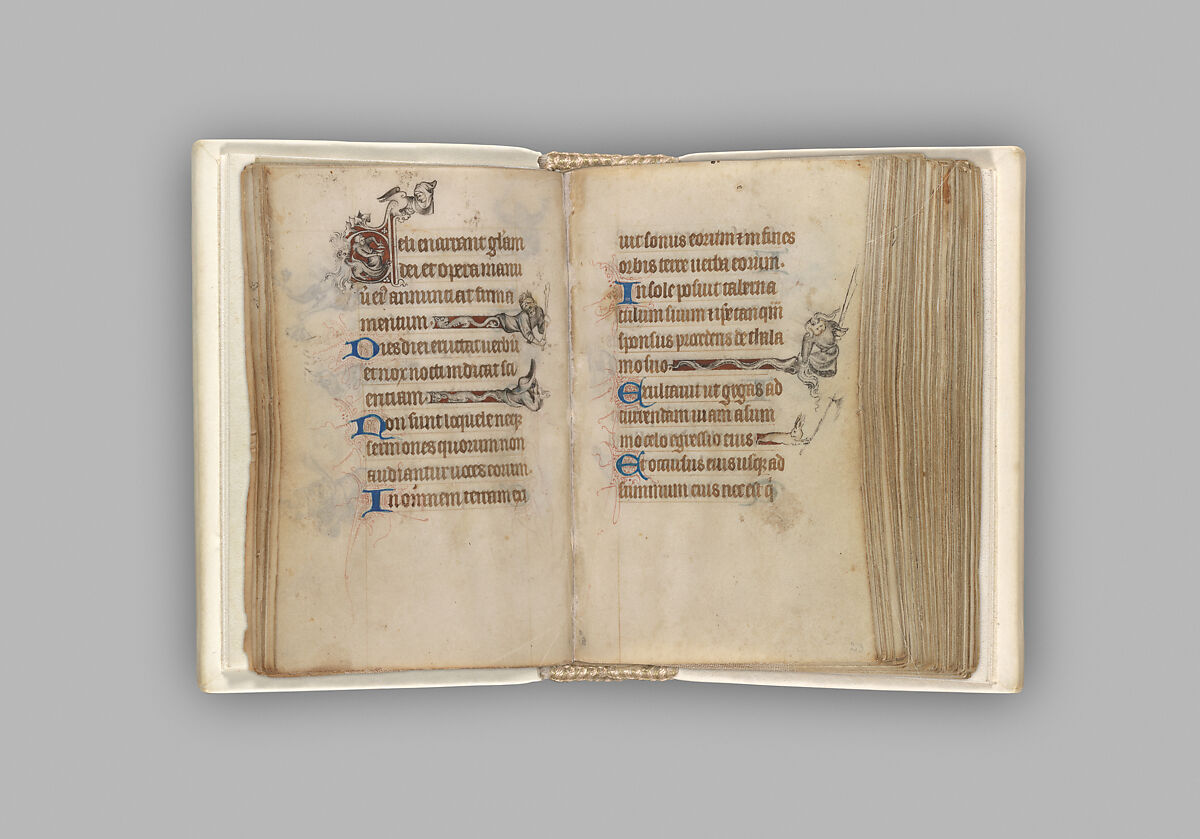 Celi enarrant gl̄am
dei et opera manu
ū ei᷒ annunciat firma
mentum
Dies diei eructat uerbū
et nox nocti indicat sci
entiam
Non sunt loquele neqꝫ
sermones quorum non
audiantur uoces eorum·
In omnem terram ex
iuit sonus eorum ⁊ in fines
orbis terre uerba eorum·
In sole posuit taberna
culum suum ⁊ ip̄e tanq̄m
sponsus procedens de thala
mo suo
Exultauit ut gygas ad
currendam uiam a sum
mo celo egressio eius
Et occursus eius usqꝫ ad
summum eius nec est q̄